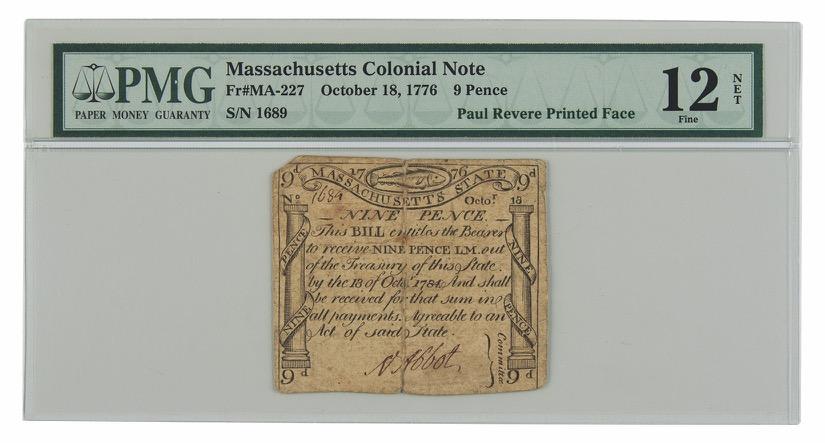 PMG
PAPER MONEY GUARANTY
Massachusetts Colonial Note
Fr#MA-227 October 18, 1776 9 Pence
S/N 1689
Paul Revere Printed Face
12
Fine
NET
9d 17 76 9d
MASSACHUSETTS STATE
No 1689 Octor. 18
NINE PENCE.
This BILL entitles the Bearer
to receive NINE PENCE L.M. out
of the Treasury of this State.
by the 18 of Octr. 1784. And shall
be received for that sum in
all payments. Agreeable to an
Act of said State.
PENCE
NINE
NINE
PENCE
N Abbot,
Committee
9d 9d